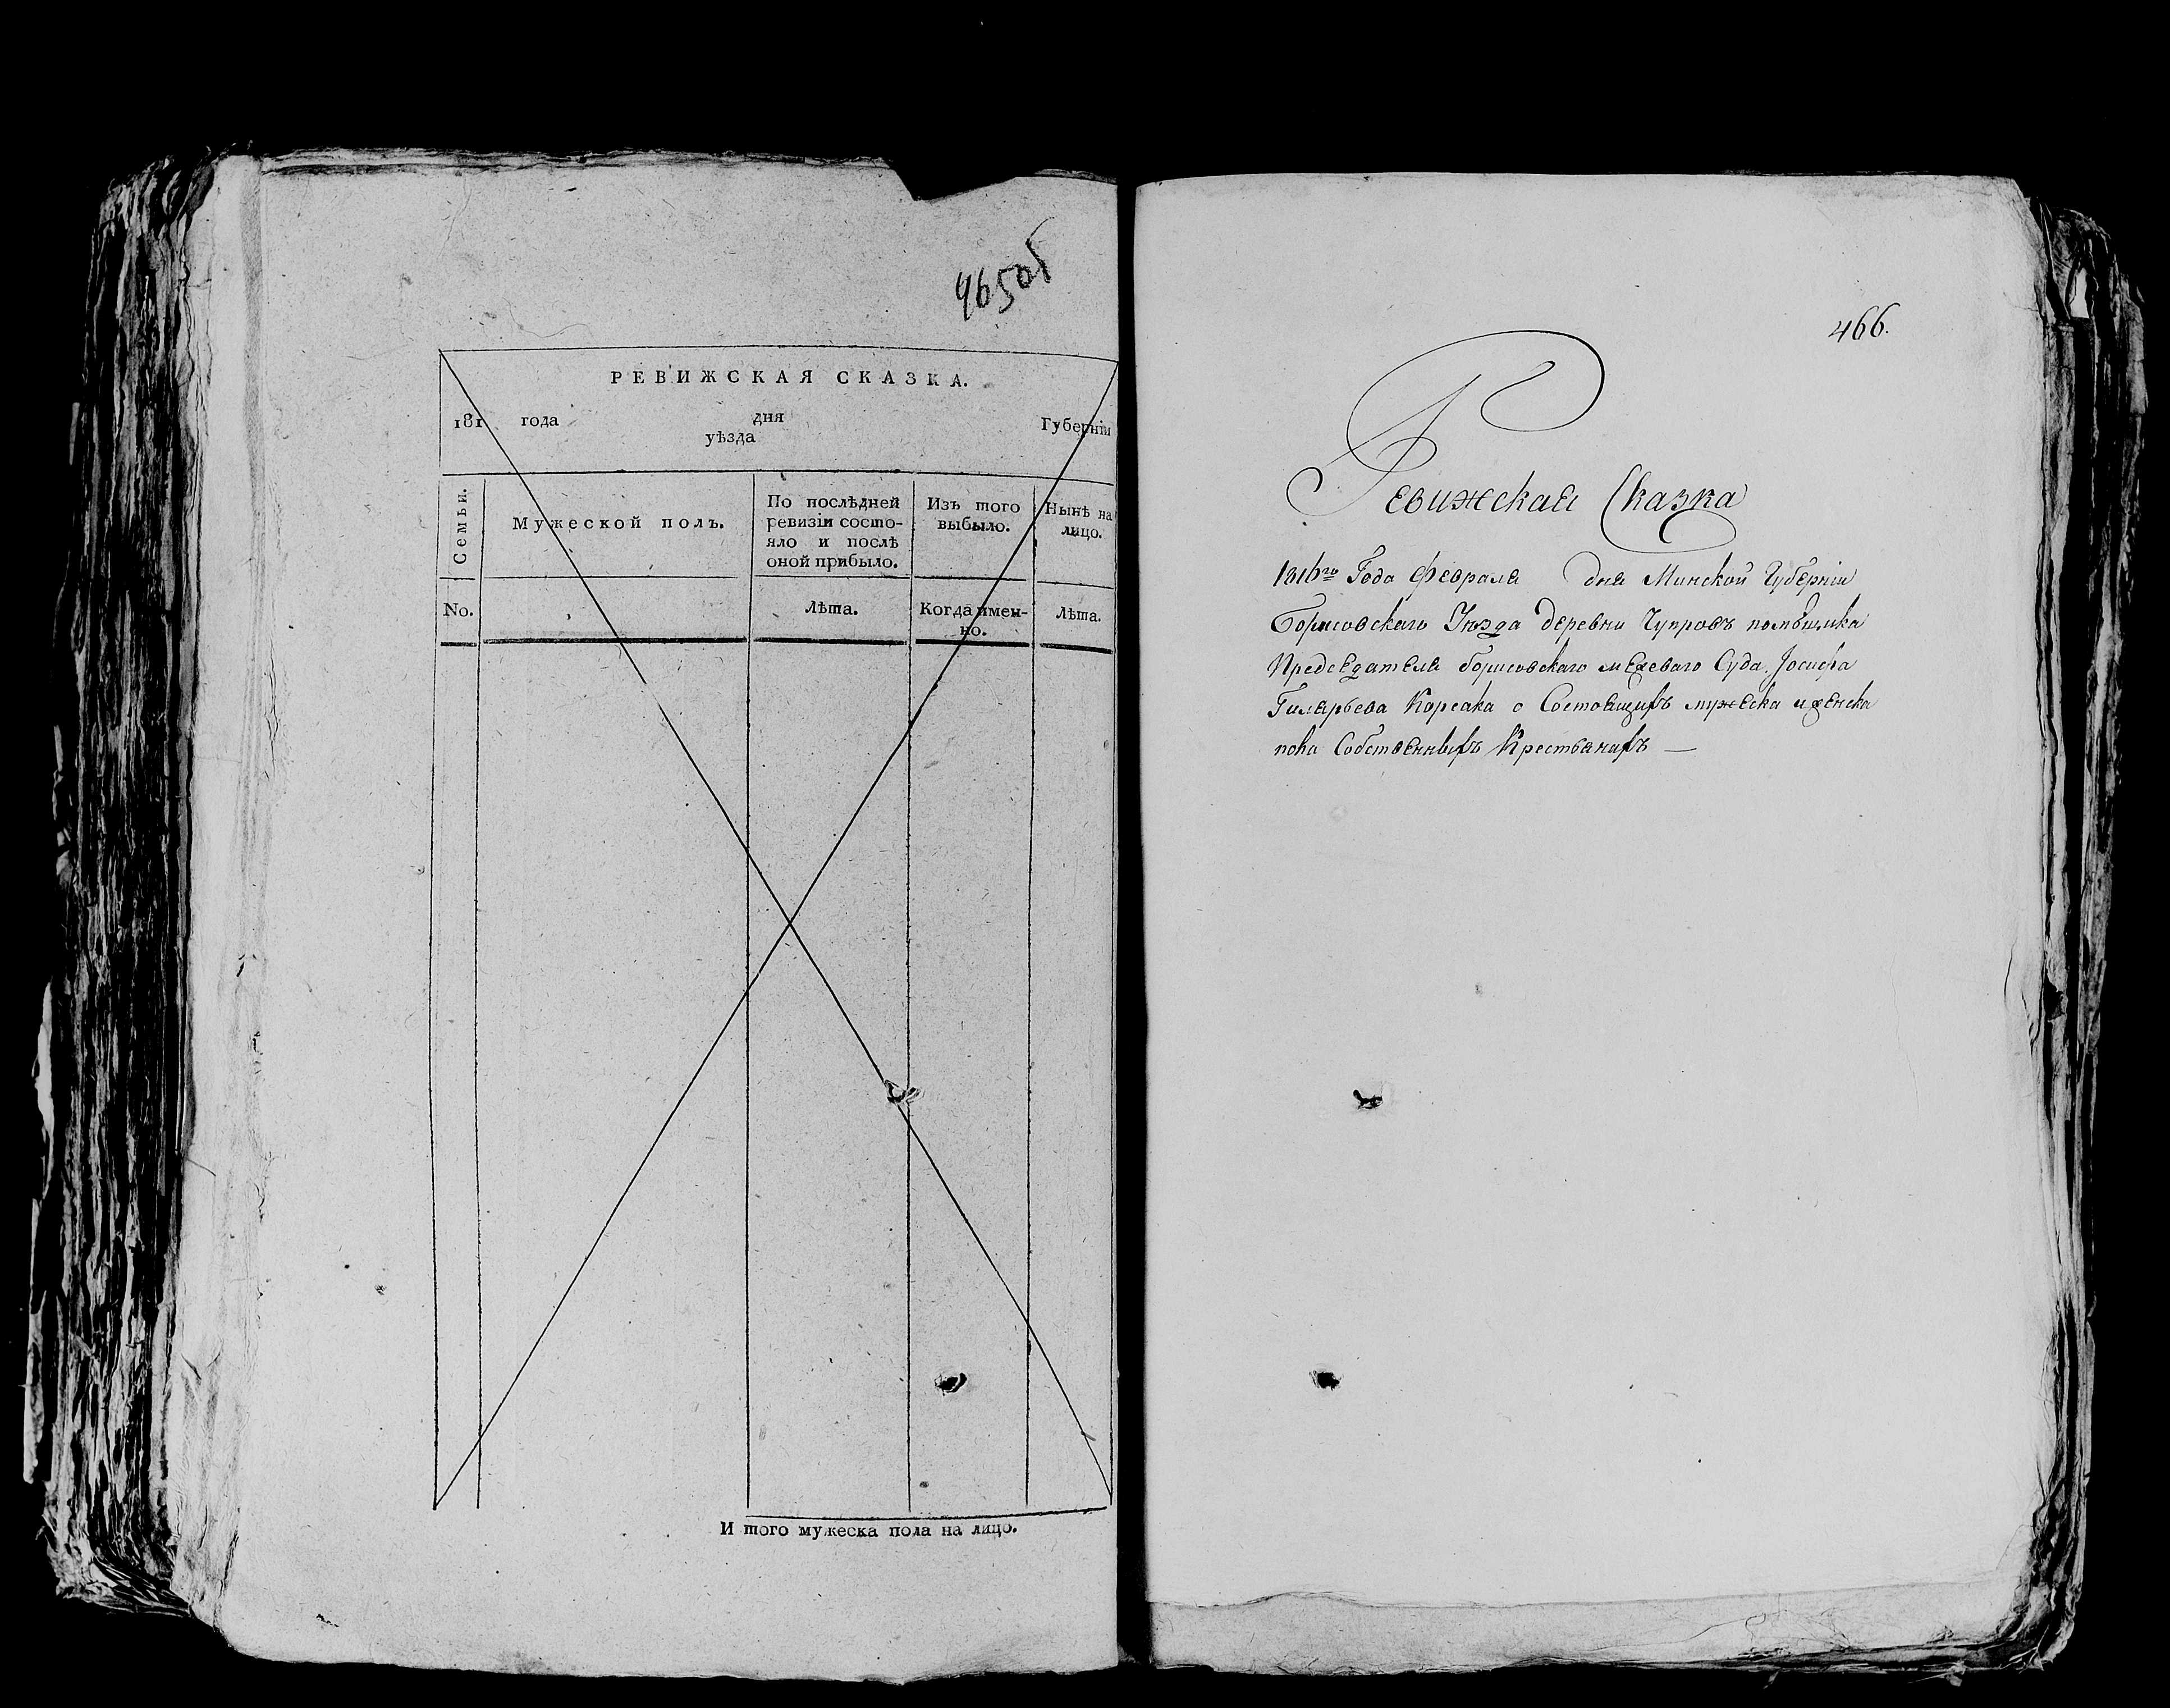 465об
РЕВИЖСКАЯ СКАЗКА.
181 года дня Губерніи
уѣзда
Семьи.
Мужеской полъ.
По послѣдней
ревизіи состо-
яло и послѣ
оной прибыло.
Изъ того
выбыло.
Нынѣ на
лицо.
No.
Лѣта.
Когда имен-
но.
Лѣта.
И того мужеска пола на лицо.
466.
Ревижская Сказка
1816го Года Февраля дня Минской Губерніи
Борисовскаго Уѣзда деревни Чупровъ помѣщика
Председателя борисовскаго межеваго Суда Іосифа
Гилярьева Корсака о Состоящихъ мужеска и женска
пола Собственныхъ Крестьянахъ —